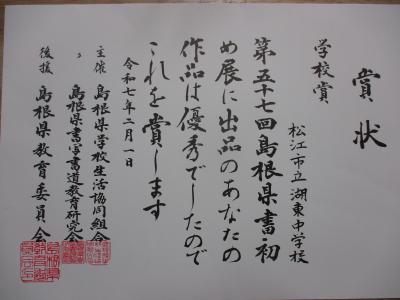 賞状
学校賞
松江市立湖東中学校
第五十七回島根県書初
め展に出品のあなたの
作品は優秀でしたので
これを賞します
令和七年二月一日
主催 島根県学校生活協同組合
〃 島根県書写書道教育研究会
後援 島根県教育委員会